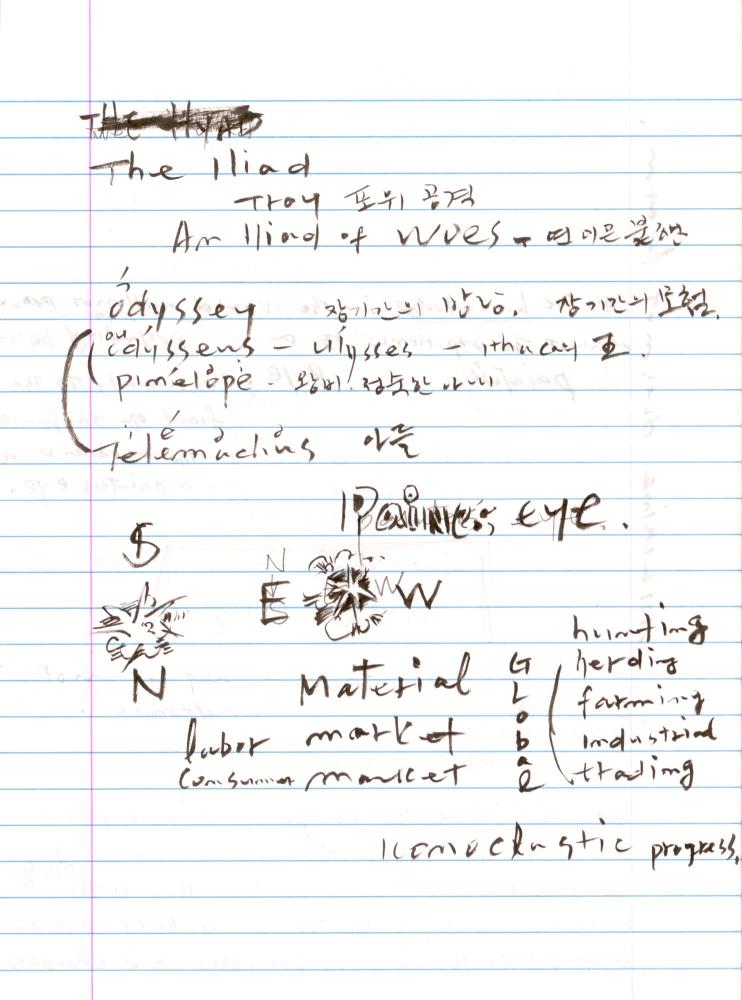 The Iliad
Troy 포위 공격
An Iliad of woes -
odyssey 장기간의 방랑. 장기간의 모험.
odysseus - ulysses - ithuca의 王.
pinelope - 왕비. 정숙한 아내
Telemachus 아들
eye.
S
N
E W
N
Material
labor market
consumer market
Global
hunting
herding
farming
industrial
trading
iconoclastic progress.